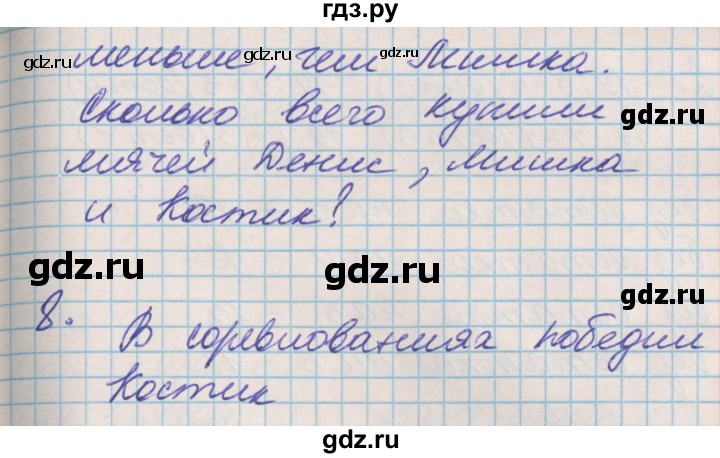 гдз.ру
меньше, чем Мишка.
Сколько всего купили
мячей Денис, Мишка
и Костик?
8. В соревнованиях победил
Костик
gdz.ru
gdz.ru
gdz.ru
gdz.ru
gdz.ru
gdz.ru
gdz.ru
gdz.ru
gdz.ru
gdz.ru